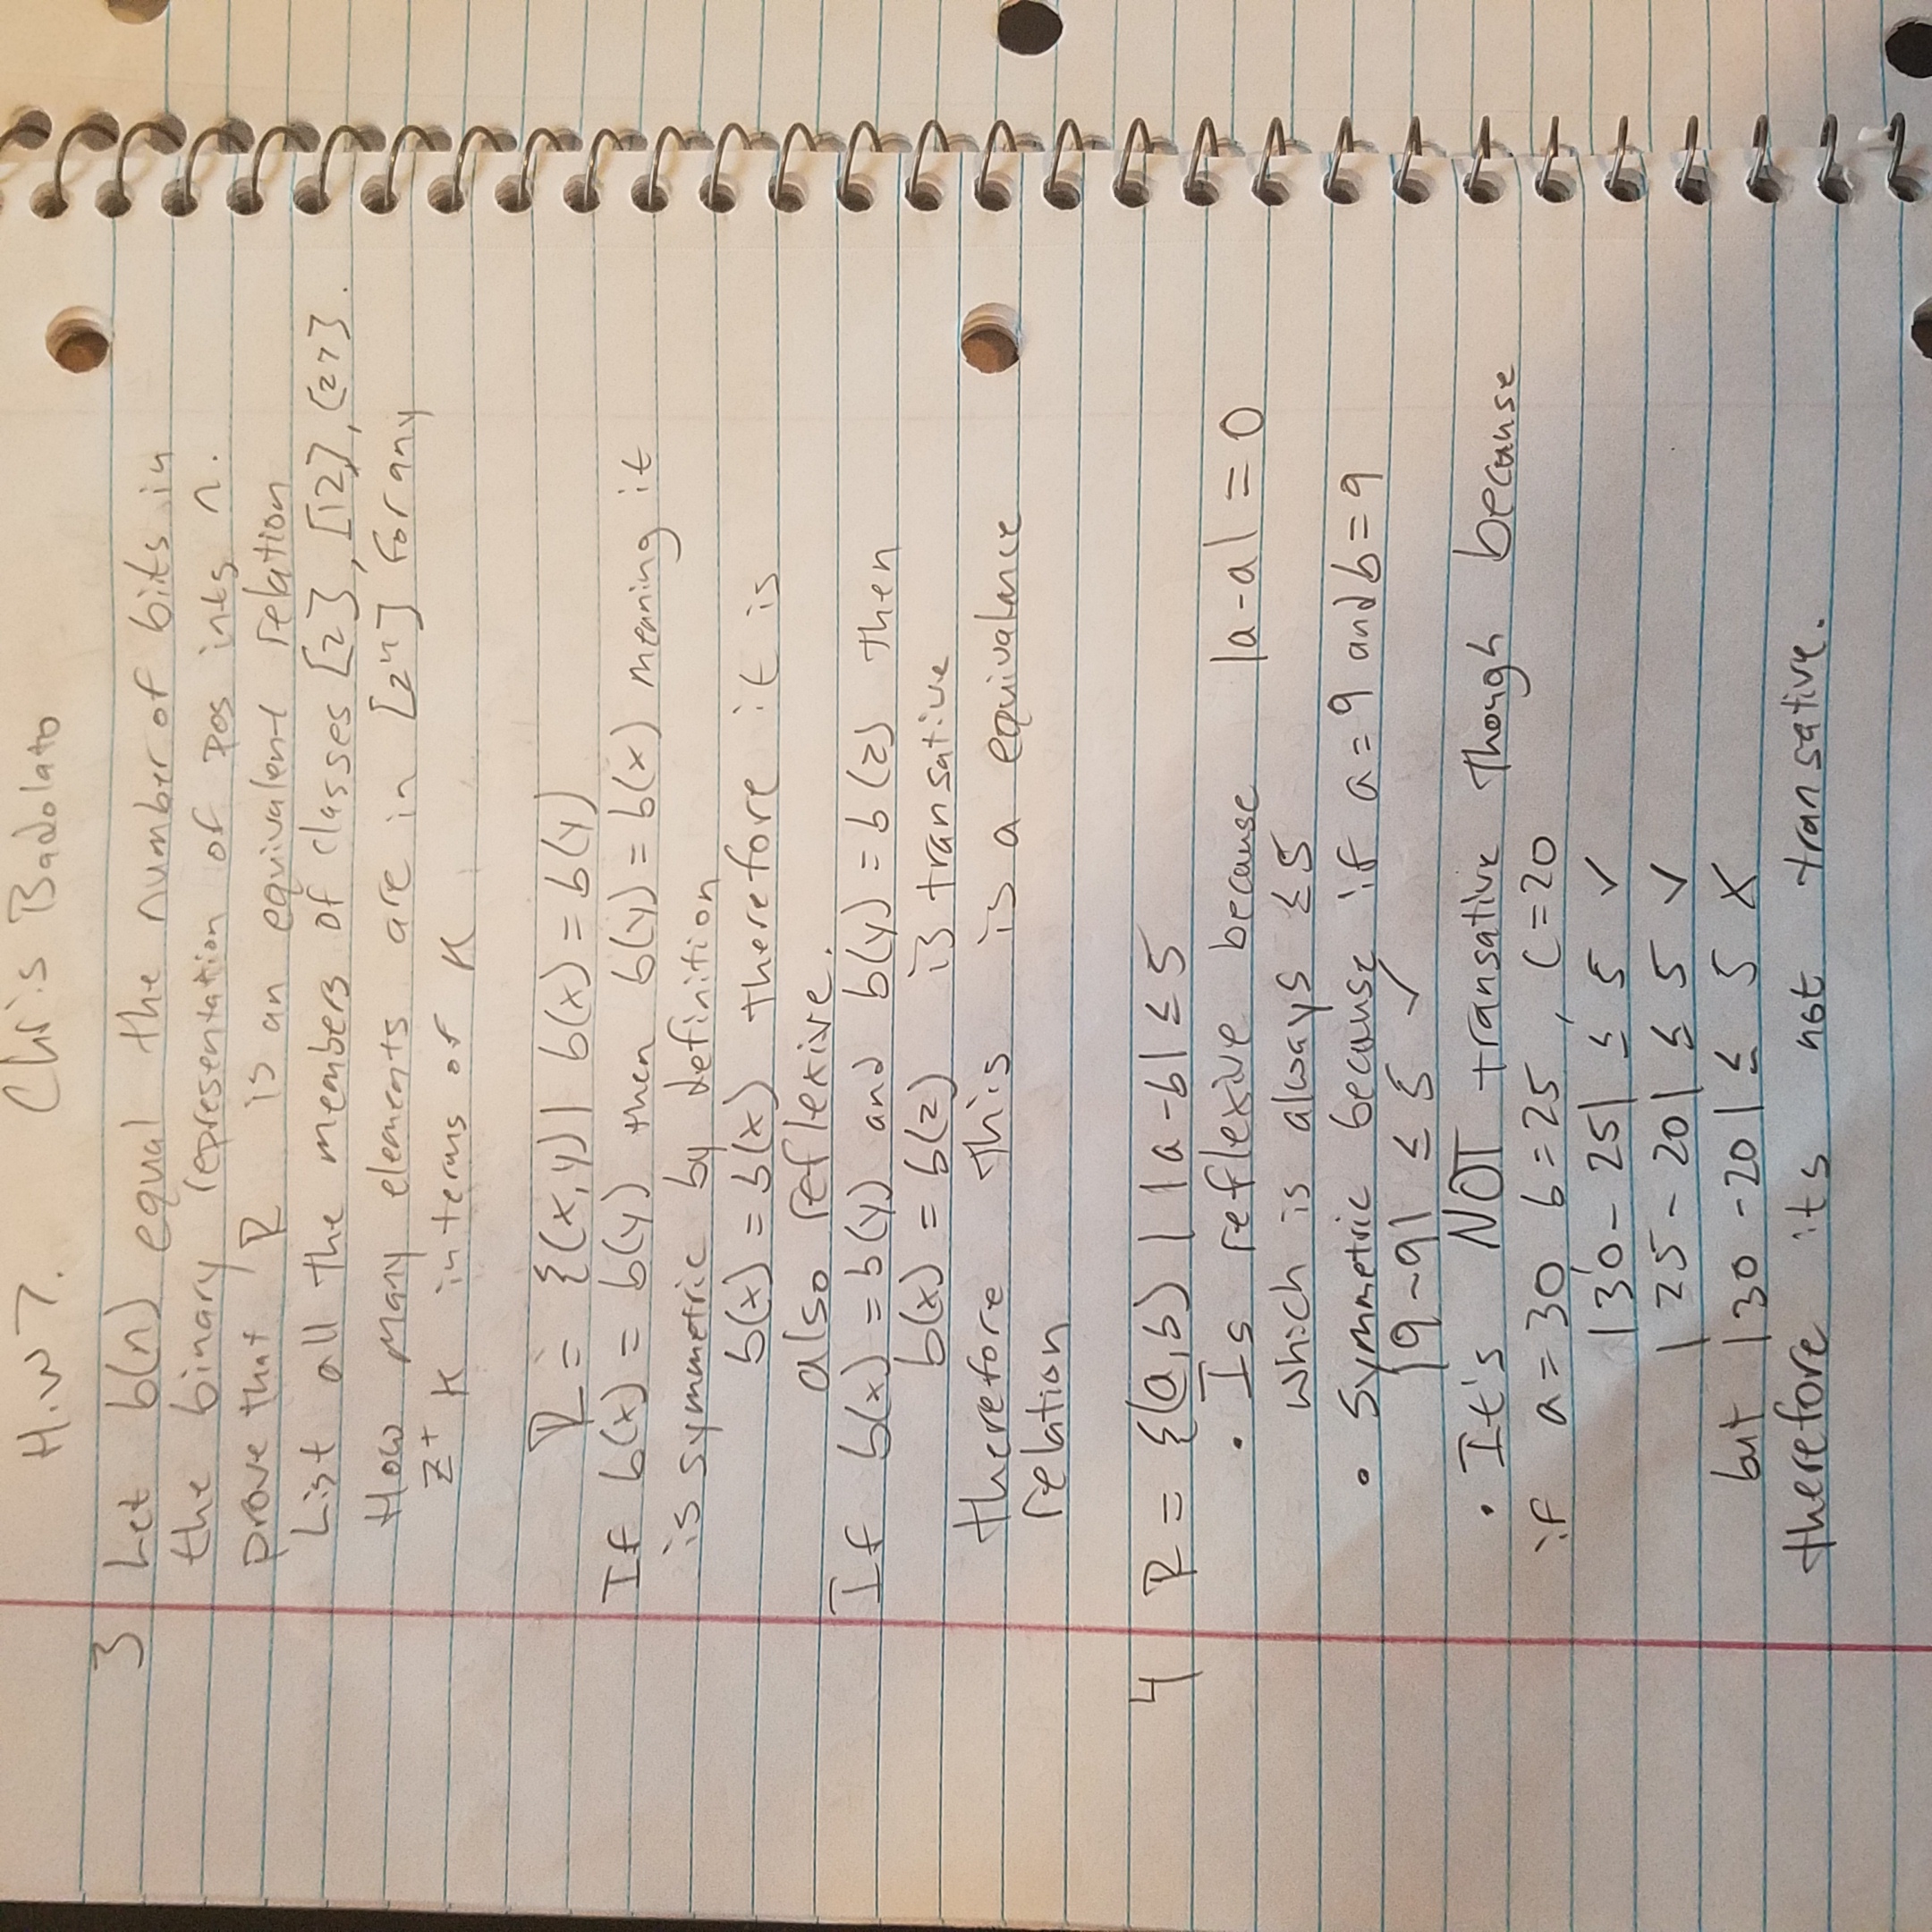 H.W 7. Chris Badolato
3 Let b(n) equal the number of bits in
the binary representation of pos ints n.
prove that R is an equivalent relation
List all the members of classes [2], [12], [27].
How many elements are in [2ⁿ] for any
Z⁺ K in terms of K
R = {(x,y) | b(x) = b(y)
If b(x) = b(y) then b(y) = b(x) meaning it
is symmetric by definition
b(x) = b(x) therefore it is
also reflexive.
If b(x) = b(y) and b(y) = b(z) then
b(x) = b(z) is transative
therefore this is a equivalance
relation
4 R = {(a,b) | |a-b| ≤ 5
• Is reflexive because |a-a| = 0
which is always ≤ 5
• Symmetric because if a = 9 and b = 9
|9-9| ≤ 5 ✓
• It's NOT transative though because
if a = 30, b = 25, c = 20
|30 - 25| ≤ 5 ✓
|25 - 20| ≤ 5 ✓
but |30 - 20| ≤ 5 X
therefore its not transative.